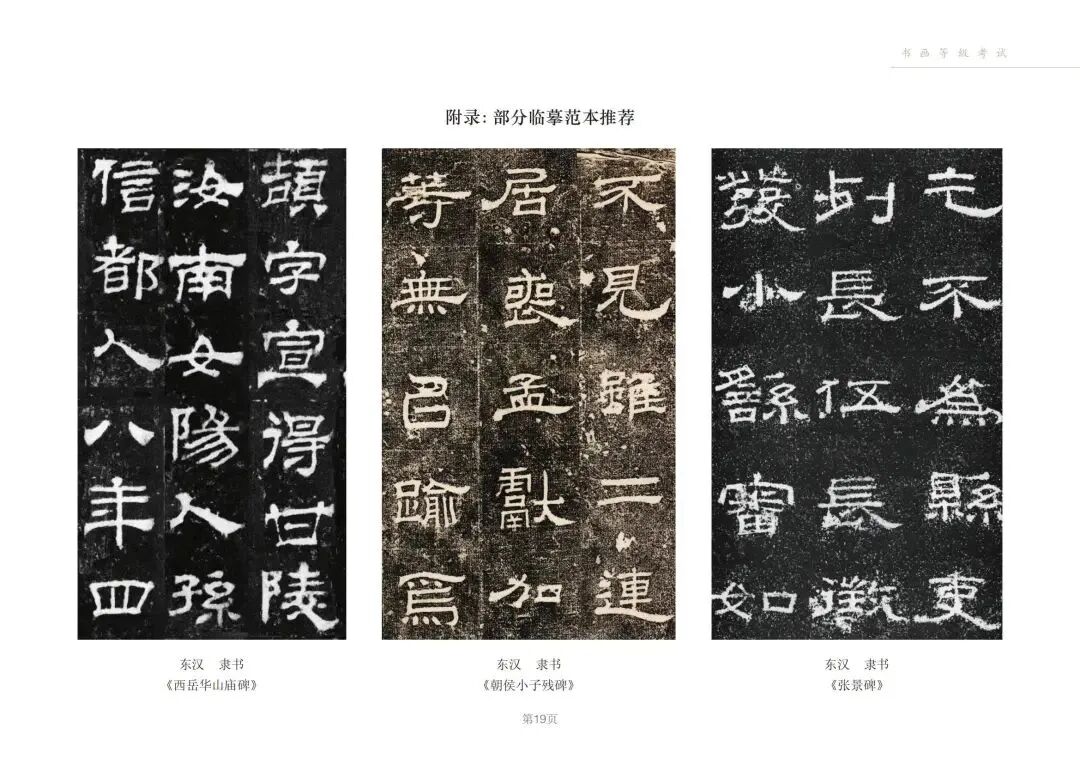 书画等级考试
附录：部分临摹范本推荐
頡字宣得甘陵
汝南女陽人孫
信都人八年四
不見雖二連
居喪孟獻加
等無㠯踰焉
乞不為縣吏
列長伍長徵
發小繇審如
东汉 隶书
《西岳华山庙碑》
东汉 隶书
《朝侯小子残碑》
东汉 隶书
《张景碑》
第19页